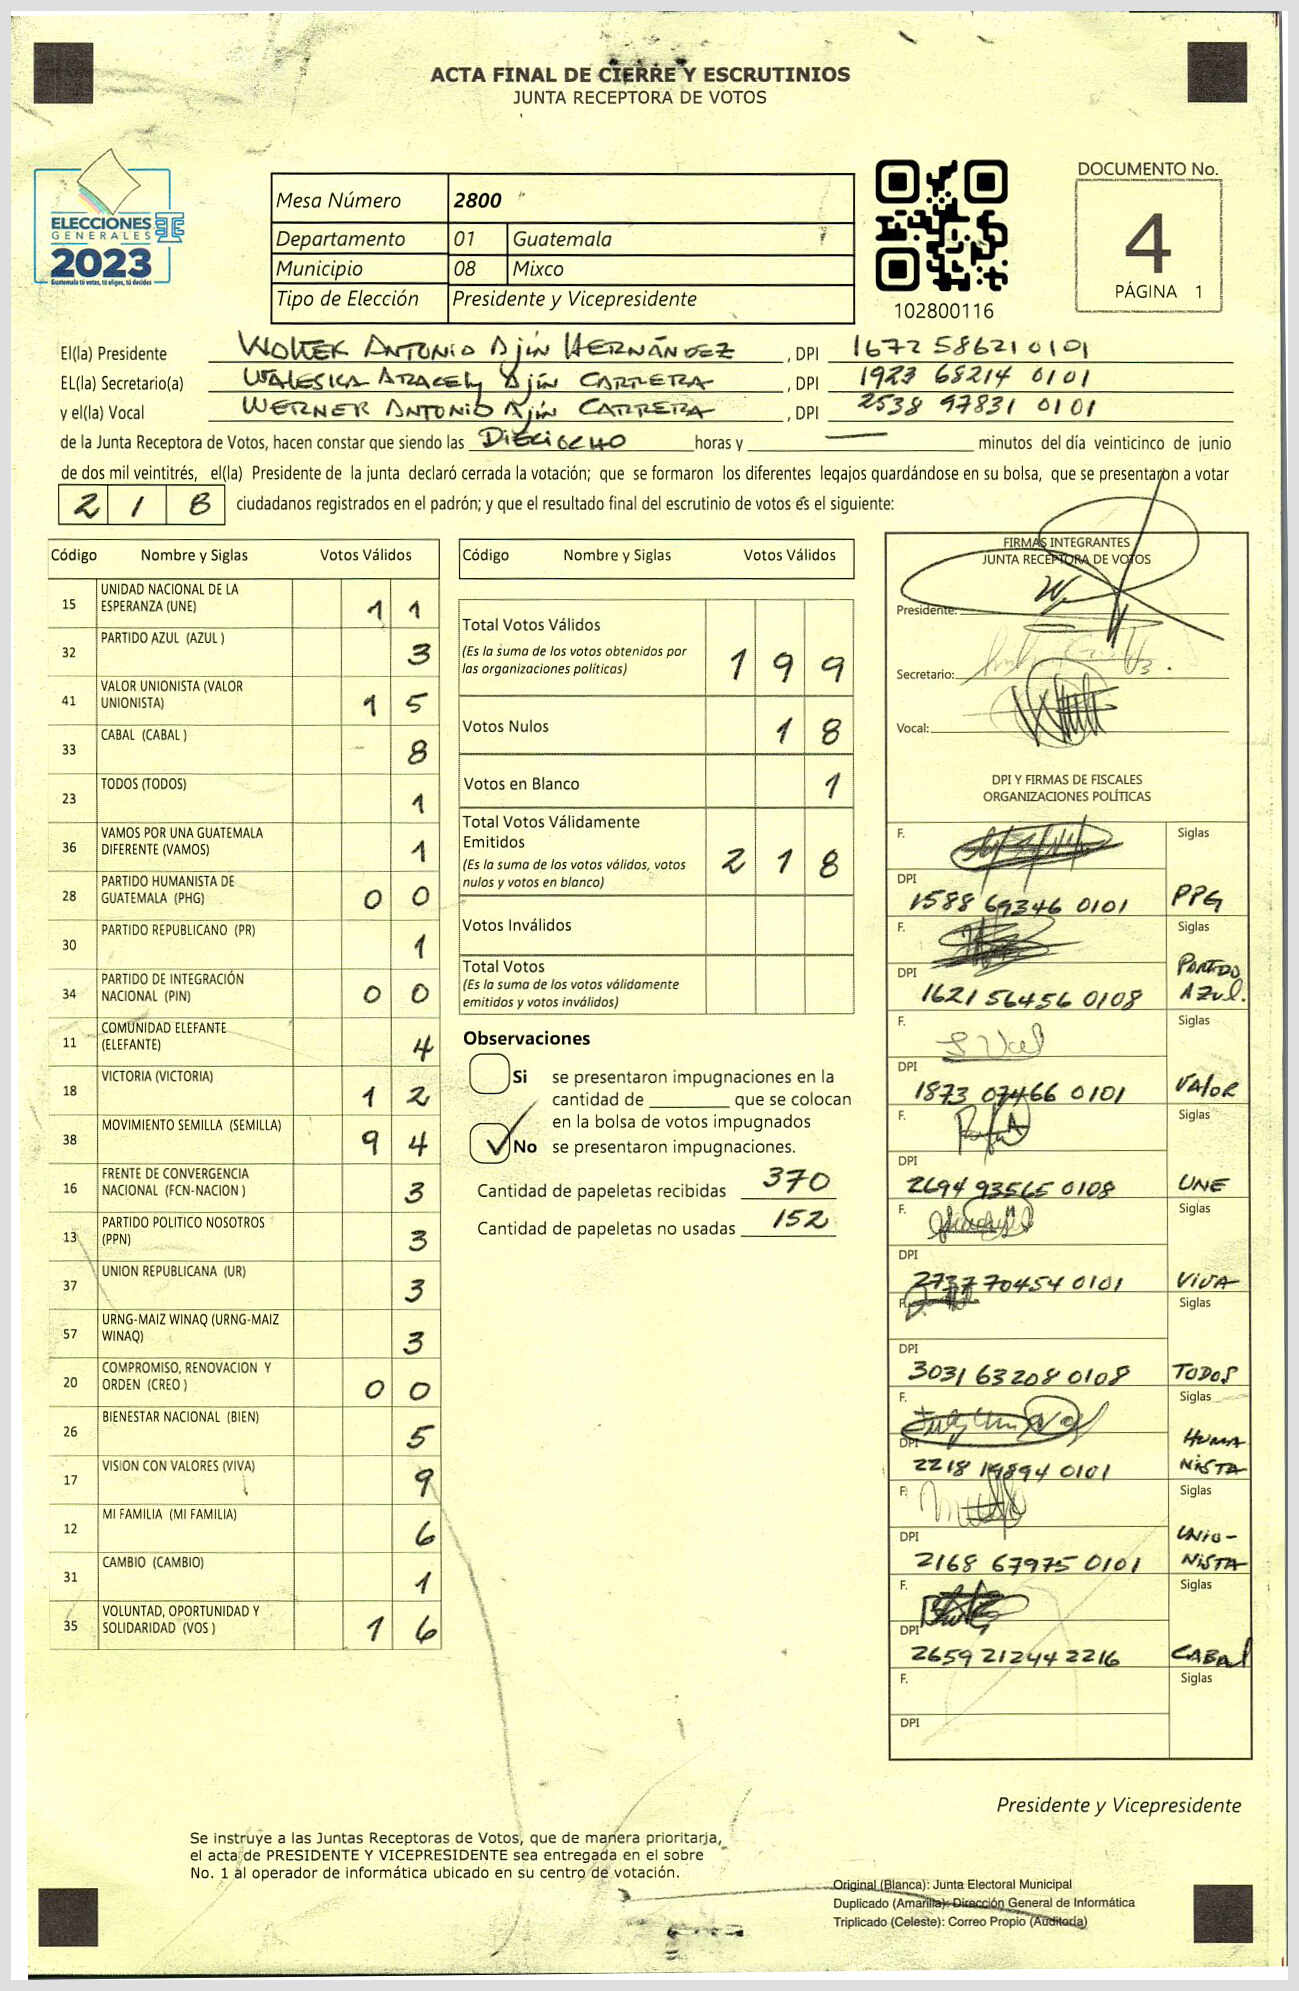 ACTA FINAL DE CIERRE Y ESCRUTINIOS
JUNTA RECEPTORA DE VOTOS
ELECCIONES
GENERALES
2023
Guatemala tú votas, tú eliges, tú decides
Mesa Número 2800
Departamento 01 Guatemala
Municipio 08 Mixco
Tipo de Elección Presidente y Vicepresidente
102800116
DOCUMENTO No.
4
PÁGINA 1
El(la) Presidente WOLTER ANTONIO AJÍN HERNÁNDEZ , DPI 1672 58621 0101
EL(la) Secretario(a) WALESKA ARACELY AJÍN CARRERA , DPI 1923 68214 0101
y el(la) Vocal WERNER ANTONIO AJÍN CARRERA , DPI 2538 97831 0101
de la Junta Receptora de Votos, hacen constar que siendo las DIECIOCHO horas y — minutos del día veinticinco de junio
de dos mil veintitrés, el(la) Presidente de la junta declaró cerrada la votación; que se formaron los diferentes legajos quardándose en su bolsa, que se presentaron a votar
2 1 8 ciudadanos registrados en el padrón; y que el resultado final del escrutinio de votos es el siguiente:
Código Nombre y Siglas Votos Válidos
15 UNIDAD NACIONAL DE LA
ESPERANZA (UNE) 1 1
32 PARTIDO AZUL (AZUL ) 3
41 VALOR UNIONISTA (VALOR
UNIONISTA) 1 5
33 CABAL (CABAL ) 8
23 TODOS (TODOS) 1
36 VAMOS POR UNA GUATEMALA
DIFERENTE (VAMOS) 1
28 PARTIDO HUMANISTA DE
GUATEMALA (PHG) 0 0
30 PARTIDO REPUBLICANO (PR) 1
34 PARTIDO DE INTEGRACIÓN
NACIONAL (PIN) 0 0
11 COMUNIDAD ELEFANTE
(ELEFANTE) 4
18 VICTORIA (VICTORIA) 1 2
38 MOVIMIENTO SEMILLA (SEMILLA) 9 4
16 FRENTE DE CONVERGENCIA
NACIONAL (FCN-NACION ) 3
13 PARTIDO POLITICO NOSOTROS
(PPN) 3
37 UNION REPUBLICANA (UR) 3
57 URNG-MAIZ WINAQ (URNG-MAIZ
WINAQ) 3
20 COMPROMISO, RENOVACION Y
ORDEN (CREO ) 0 0
26 BIENESTAR NACIONAL (BIEN) 5
17 VISION CON VALORES (VIVA) 9
12 MI FAMILIA (MI FAMILIA) 6
31 CAMBIO (CAMBIO) 1
35 VOLUNTAD, OPORTUNIDAD Y
SOLIDARIDAD (VOS ) 1 6
Código Nombre y Siglas Votos Válidos
Total Votos Válidos
(Es la suma de los votos obtenidos por
las organizaciones políticas) 1 9 9
Votos Nulos 1 8
Votos en Blanco 1
Total Votos Válidamente
Emitidos
(Es la suma de los votos válidos, votos
nulos y votos en blanco) 2 1 8
Votos Inválidos
Total Votos
(Es la suma de los votos válidamente
emitidos y votos inválidos)
Observaciones
Si se presentaron impugnaciones en la
cantidad de ________ que se colocan
en la bolsa de votos impugnados
No se presentaron impugnaciones.
Cantidad de papeletas recibidas 370
Cantidad de papeletas no usadas 152
FIRMAS INTEGRANTES
JUNTA RECEPTORA DE VOTOS
Presidente:
Secretario:
Vocal:
DPI Y FIRMAS DE FISCALES
ORGANIZACIONES POLÍTICAS
F. Siglas
DPI
1588 69346 0101 PPG
F. Siglas
DPI PARTIDO
1621 56456 0108 AZUL.
F. Siglas
DPI
1873 07466 0101 VALOR
F. Siglas
DPI
2694 93565 0108 UNE
F. Siglas
DPI
2737 70454 0101 VIVA
F. Siglas
DPI
3031 63208 0108 TODOS
F. Siglas
DPI HUMA
2218 19894 0101 NISTA
F. Siglas
DPI UNIO-
2168 67975 0101 NISTA
F. Siglas
DPI
2659 21244 2216 CABAL
F. Siglas
DPI
Presidente y Vicepresidente
Se instruye a las Juntas Receptoras de Votos, que de manera prioritaria,
el acta de PRESIDENTE Y VICEPRESIDENTE sea entregada en el sobre
No. 1 al operador de informática ubicado en su centro de votación.
Original (Blanca): Junta Electoral Municipal
Duplicado (Amarilla): Dirección General de Informática
Triplicado (Celeste): Correo Propio (Auditoría)